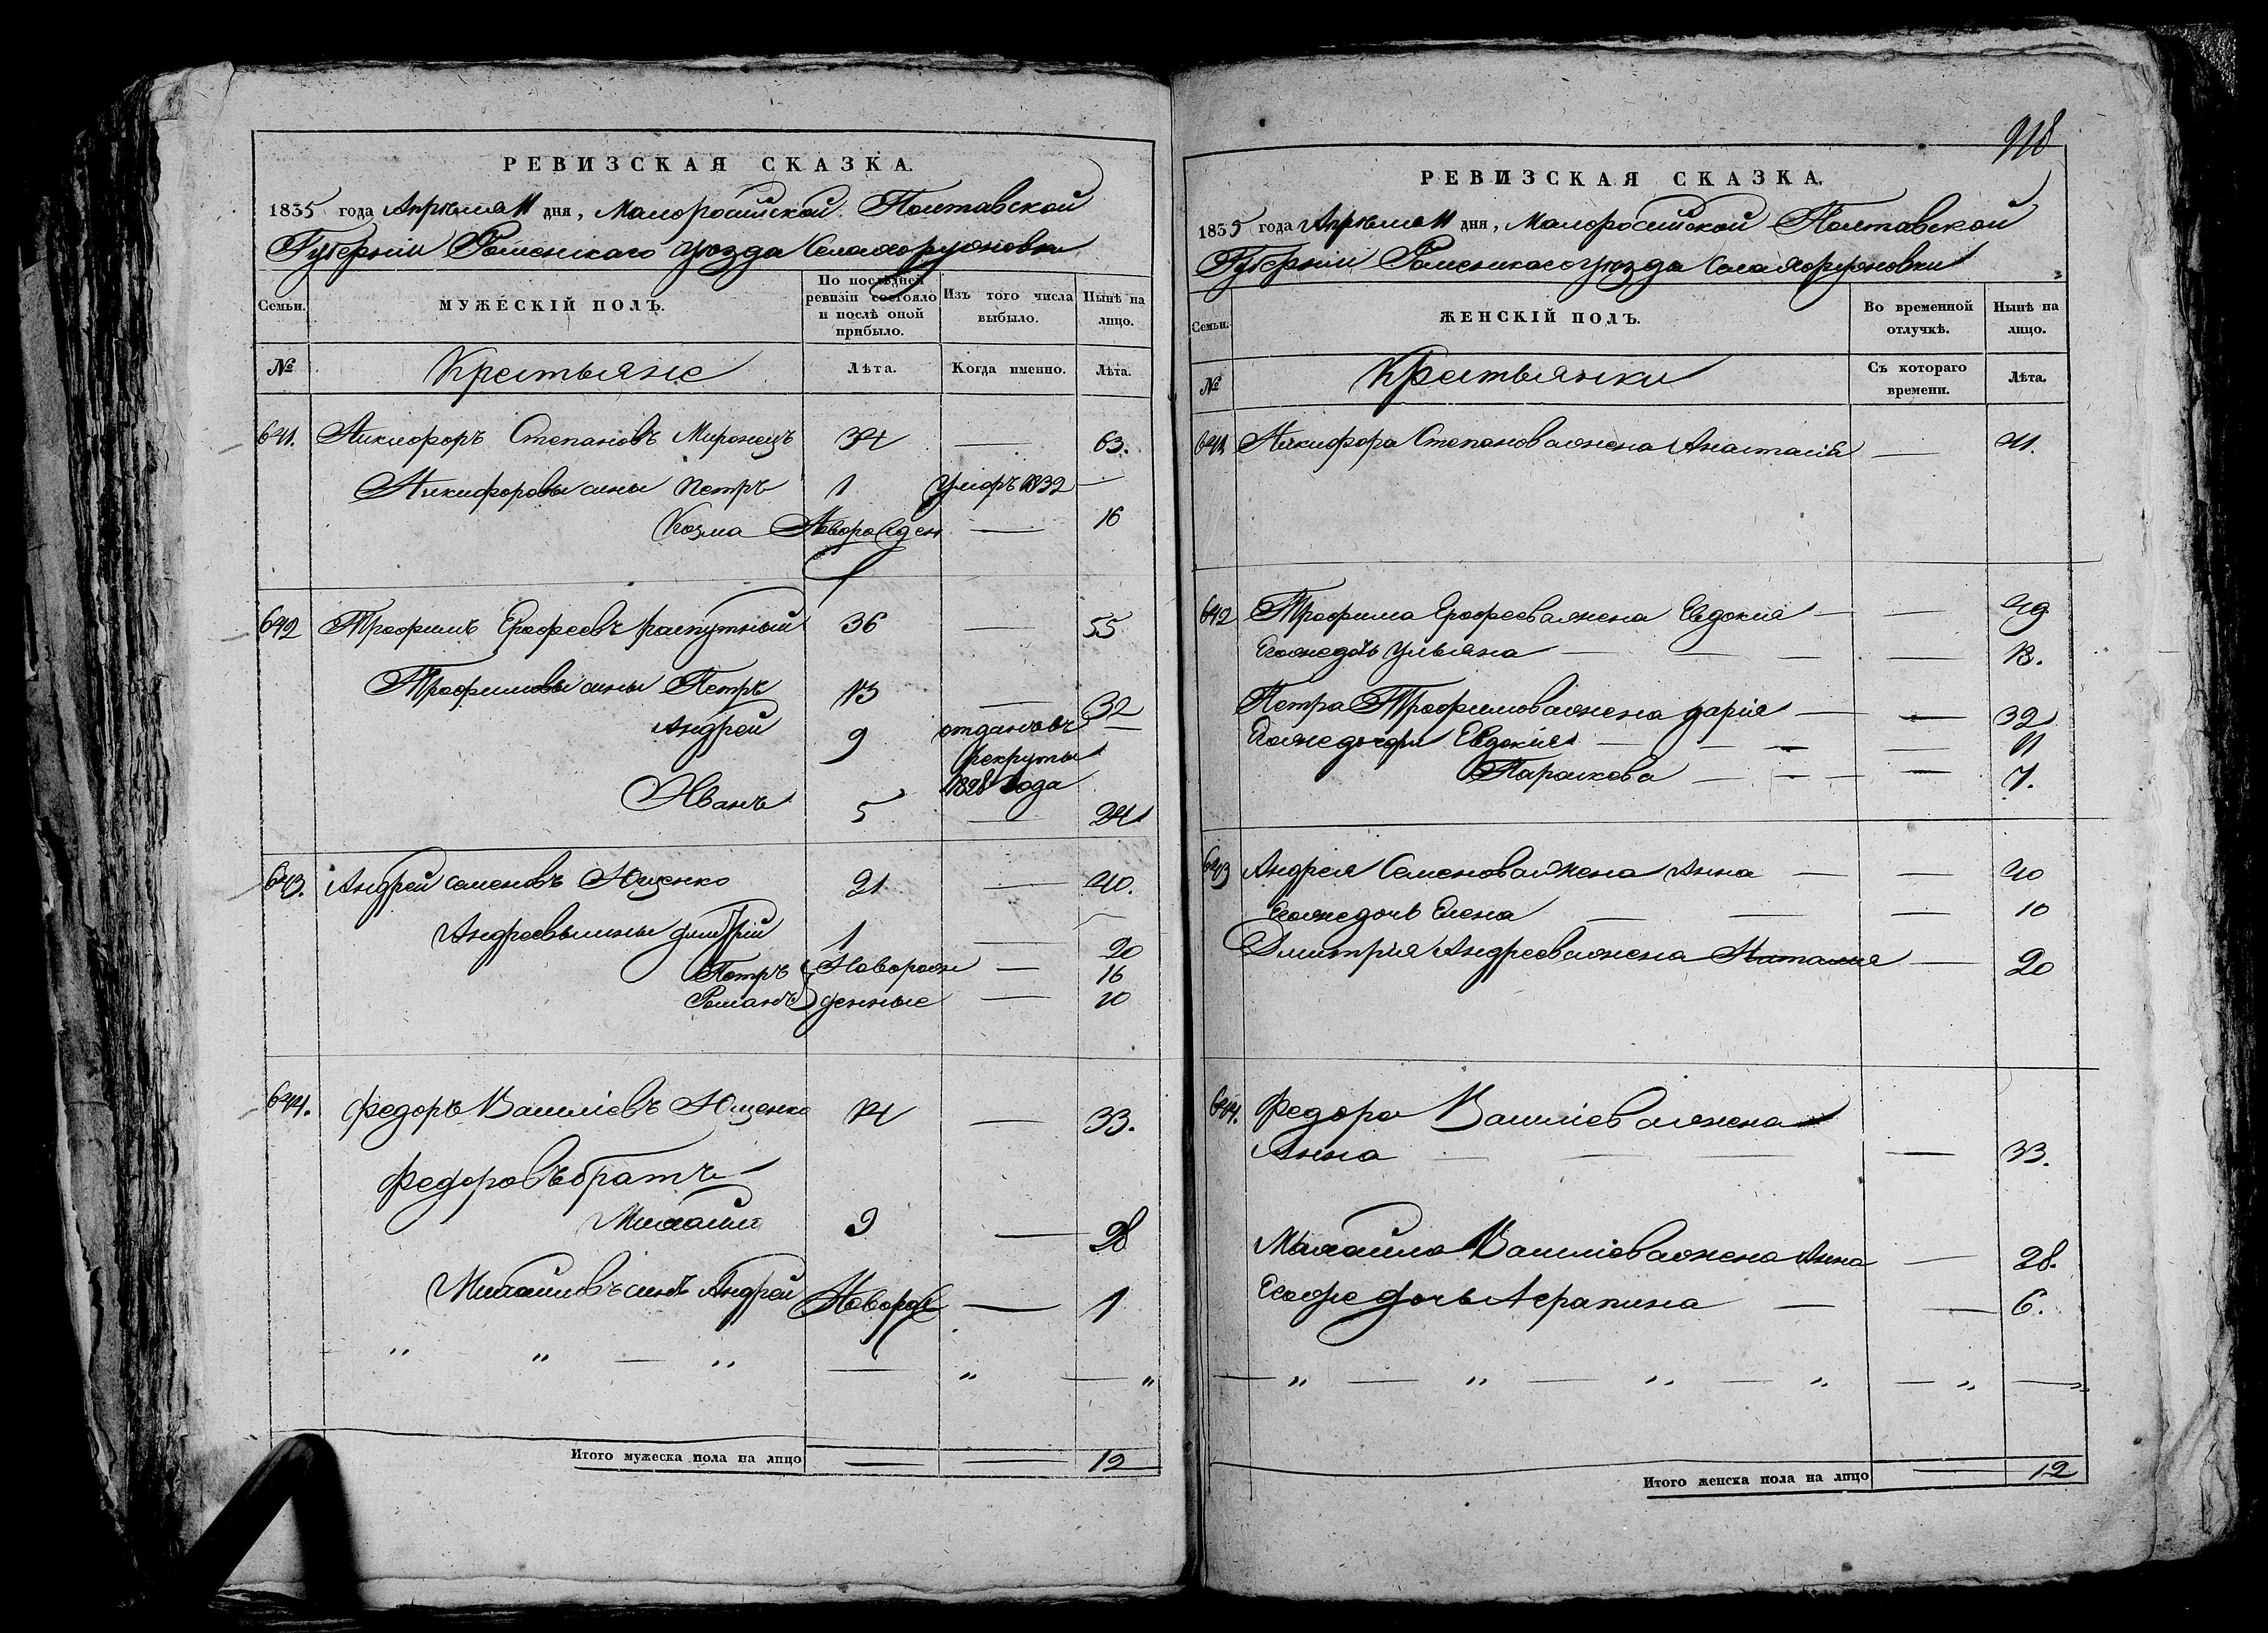 РЕВИЗСКАЯ СКАЗКА.
1835 года Апреля 11 дня, Малоросийской Полтавской
Губерніи Роменскаго уезда Села Хоружовки
Семьи. МУЖЕСКІЙ ПОЛЪ. По послѣдней ревизіи состояло и послѣ оной прибыло. Изъ того числа выбыло. Нынѣ на лицо.
№ Крестьяне Лѣта. Когда именно. Лѣта.
641. Никифоръ Степановъ Миронецъ 34 — 63.
Никифоровы сины Петръ 1 умеръ 1832 —
Козма Новорожден — 16
642 Трофимъ Ерофеевъ распутный 36 — 55
Трофимовы сины Петръ 13 — 32
Андрей 9 отданъ въ —
рекруты
1828 года
Иванъ 5 — 24
643. Андрей Семеновъ Ющенко 21 — 40.
Андреевы сины дмитрій 1 — 20
Петръ Новорож — 16
Романъ денные — 10
644. Федоръ Василіевъ Ющенко 14 — 33.
Федоровъ братъ
Михаил 9 — 28
Михаиловъ синъ Андрей Новорож — 1
Итого мужеска пола на лицо 12
918
РЕВИЗСКАЯ СКАЗКА.
1835 года Апреля 11 дня, Малоросийской Полтавской
Губерніи Роменскаго уезда Села Хоружовки
Семьи. ЖЕНСКІЙ ПОЛЪ. Во временной отлучкѣ. Нынѣ на лицо.
№ Крестьянки Съ котораго времени. Лѣта.
641 Никифора Степанова жена Анастасія — 41.
642 Трофима Ерофеева жена Евдокия — 49
Егоже дочь Ульяна — 13.
Петра Трофимова жена дарія — 32
Егоже дочери Евдокия — 11
Параскева — 7.
643 Андрея Семенова жена Анна — 40
Егоже дочь Елена — 10
Дмитрия Андреева жена Наталия — 20
644. Федора Василіева жена
Анна — 33.
Михаила Василіева жена Анна — 28.
Егоже дочь Агрипина — 6.
Итого женска пола на лицо 12